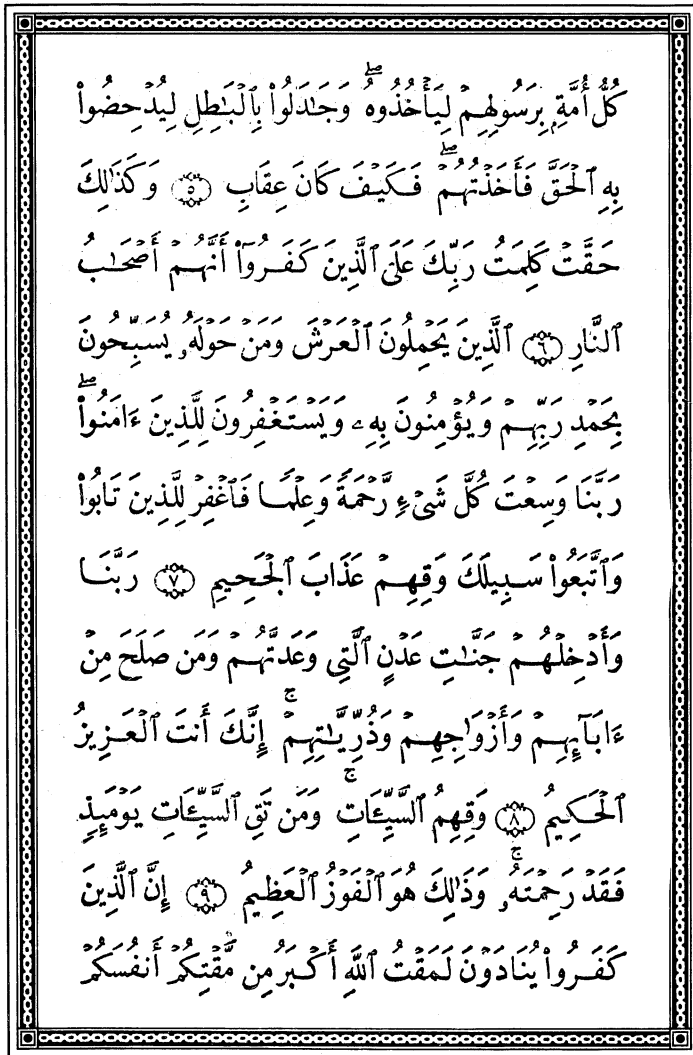 كُلُّ أُمَّةِۭ بِرَسُولِهِمْ لِيَأْخُذُوهُۖ وَجَٰدَلُوا۟ بِٱلْبَٰطِلِ لِيُدْحِضُوا۟
بِهِ ٱلْحَقَّ فَأَخَذْتُهُمْۖ فَكَيْفَ كَانَ عِقَابِ ۝٥ وَكَذَٰلِكَ
حَقَّتْ كَلِمَتُ رَبِّكَ عَلَى ٱلَّذِينَ كَفَرُوٓا۟ أَنَّهُمْ أَصْحَٰبُ
ٱلنَّارِ ۝٦ ٱلَّذِينَ يَحْمِلُونَ ٱلْعَرْشَ وَمَنْ حَوْلَهُۥ يُسَبِّحُونَ
بِحَمْدِ رَبِّهِمْ وَيُؤْمِنُونَ بِهِۦ وَيَسْتَغْفِرُونَ لِلَّذِينَ ءَامَنُوا۟ۖ
رَبَّنَا وَسِعْتَ كُلَّ شَىْءٍ رَّحْمَةً وَعِلْمًا فَٱغْفِرْ لِلَّذِينَ تَابُوا۟
وَٱتَّبَعُوا۟ سَبِيلَكَ وَقِهِمْ عَذَابَ ٱلْجَحِيمِ ۝٧ رَبَّنَا
وَأَدْخِلْهُمْ جَنَّٰتِ عَدْنٍ ٱلَّتِى وَعَدتَّهُمْ وَمَن صَلَحَ مِنْ
ءَابَآئِهِمْ وَأَزْوَٰجِهِمْ وَذُرِّيَّٰتِهِمْۚ إِنَّكَ أَنتَ ٱلْعَزِيزُ
ٱلْحَكِيمُ ۝٨ وَقِهِمُ ٱلسَّيِّـَٔاتِۚ وَمَن تَقِ ٱلسَّيِّـَٔاتِ يَوْمَئِذٍ
فَقَدْ رَحِمْتَهُۥۚ وَذَٰلِكَ هُوَ ٱلْفَوْزُ ٱلْعَظِيمُ ۝٩ إِنَّ ٱلَّذِينَ
كَفَرُوا۟ يُنَادَوْنَ لَمَقْتُ ٱللَّهِ أَكْبَرُ مِن مَّقْتِكُمْ أَنفُسَكُمْ